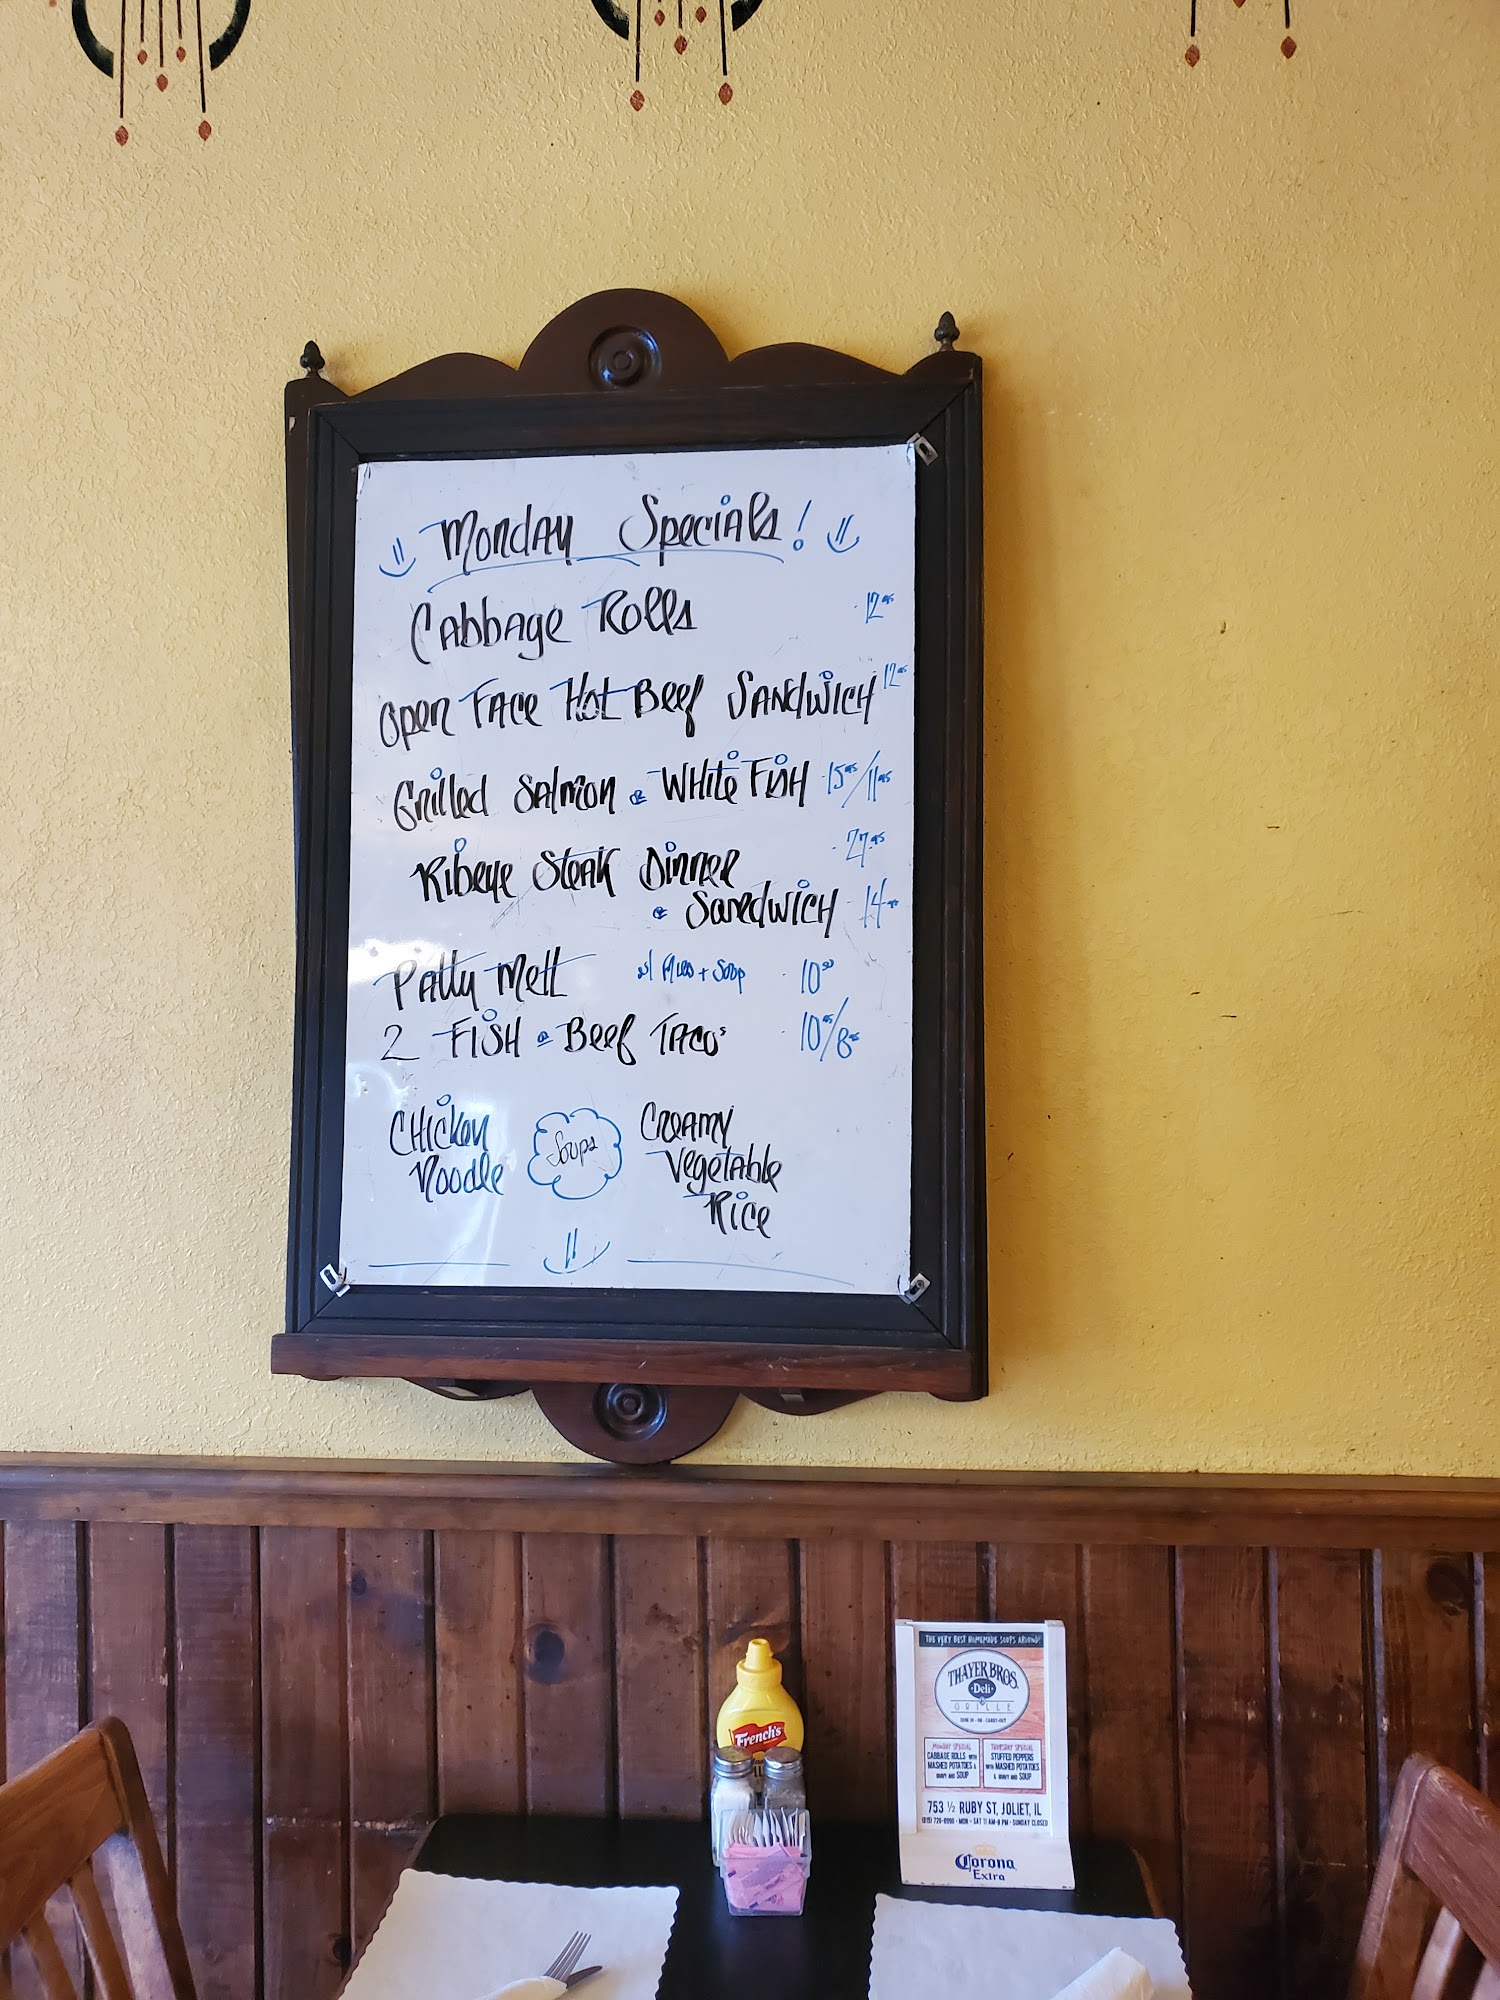 Monday Specials!
Cabbage Rolls 12.95
Open Face Hot Beef Sandwich 12.95
Grilled Salmon or White Fish 15.95/11.95
Ribeye Steak Dinner 27.95
or Sandwich 14.95
Patty Melt w/ Fries + Soup 10.50
2 Fish or Beef Taco's 10.95/8.95
Chicken Noodle
Soups
Creamy Vegetable Rice
French's
THE VERY BEST HOMEMADE SOUPS AROUND!
THAYER BROS.
Deli
&
GRILLE
DINE IN - OR - CARRY-OUT
MONDAY SPECIAL
CABBAGE ROLLS WITH
MASHED POTATOES &
GRAVY AND SOUP
THURSDAY SPECIAL
STUFFED PEPPERS
WITH MASHED POTATOES
& GRAVY AND SOUP
753 ½ RUBY ST, JOLIET, IL
MON - SAT 11 AM-8 PM • SUNDAY CLOSED
Corona
Extra